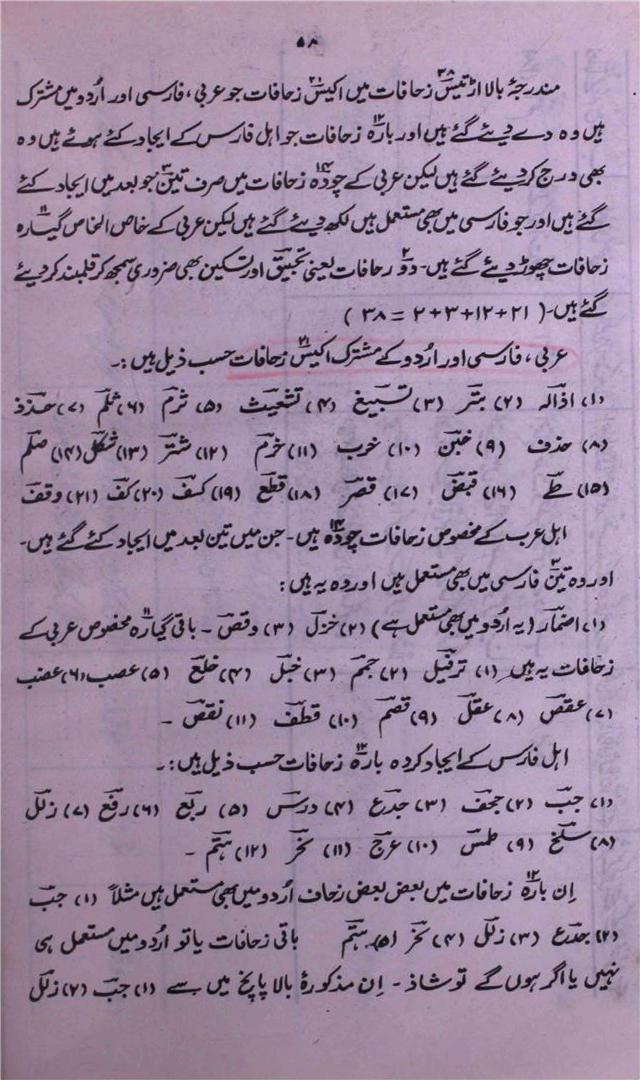 ۵۸
مندرجۂ بالا اڑتیس۳۸ زحافات میں اکیس۲۱ زحافات جو عربی، فارسی اور اُردو میں مشترک
ہیں وہ دے دیئے گئے ہیں اور بارہ۱۲ زحافات جو اہل فارس کے ایجاد کئے ہوئے ہیں وہ
بھی درج کردیئے گئے ہیں لیکن عربی کے چودہ۱۴ زحافات میں صرف تین۳ جو بعد میں ایجاد کئے
گئے ہیں اور جو فارسی میں بھی مستعمل ہیں لکھ دیئے گئے ہیں لیکن عربی کے خاص الخاص گیارہ۱۱
زحافات چھوڑ دیئے گئے ہیں۔ دو۲ زحافات یعنی تخنیق اور تسکین بھی ضروری سمجھ کر قلمبند کردیئے
گئے ہیں۔ (۲۱+۱۲+۳+۲ = ۳۸)
عربی، فارسی اور اُردو کے مشترک اکیس۲۱ زحافات حسب ذیل ہیں:۔
(۱) اذالہ (۲) بتر (۳) تسبیغ (۴) تشعیث (۵) ثرم (۶) ثلم (۷) حذذ
(۸) حذف (۹) خبن (۱۰) خرب (۱۱) خرم (۱۲) شتر (۱۳) شکل (۱۴) صلم
(۱۵) طے (۱۶) قبض (۱۷) قصر (۱۸) قطع (۱۹) کسف (۲۰) کف (۲۱) وقف
اہل عرب کے مخصوص زحافات چودہ۱۴ ہیں۔ جن میں تین بعد میں ایجاد کئے گئے ہیں۔
اور وہ تین۳ فارسی میں بھی مستعمل ہیں اور وہ یہ ہیں:
(۱) اضمار (یہ اُردو میں بھی مستعمل ہے) (۲) خزل (۳) وقص ۔ باقی گیارہ۱۱ مخصوص عربی کے
زحافات یہ ہیں (۱) ترفیل (۲) جمم (۳) خبل (۴) خلع (۵) عصب (۶) عضب
(۷) عقص (۸) عقل (۹) قصم (۱۰) قطف (۱۱) نقص ۔
اہل فارس کے ایجاد کردہ بارہ۱۲ زحافات حسب ذیل ہیں:۔
(۱) جب (۲) جحف (۳) جدع (۴) درس (۵) ربع (۶) رفع (۷) زلل
(۸) سلخ (۹) طمس (۱۰) عرج (۱۱) نحر (۱۲) ہتم ۔
اِن بارہ۱۲ زحافات میں بعض بعض زحاف اُردو میں بھی مستعمل ہیں مثلاً (۱) جب
(۲) جدع (۳) زلل (۴) نحر (۵) ہتم باقی زحافات یا تو اُردو میں مستعمل ہی
نہیں یا اگر ہوں گے تو شاذ ۔ اِن مذکورۂ بالا پانچ میں سے (۱) جب (۲) زلل